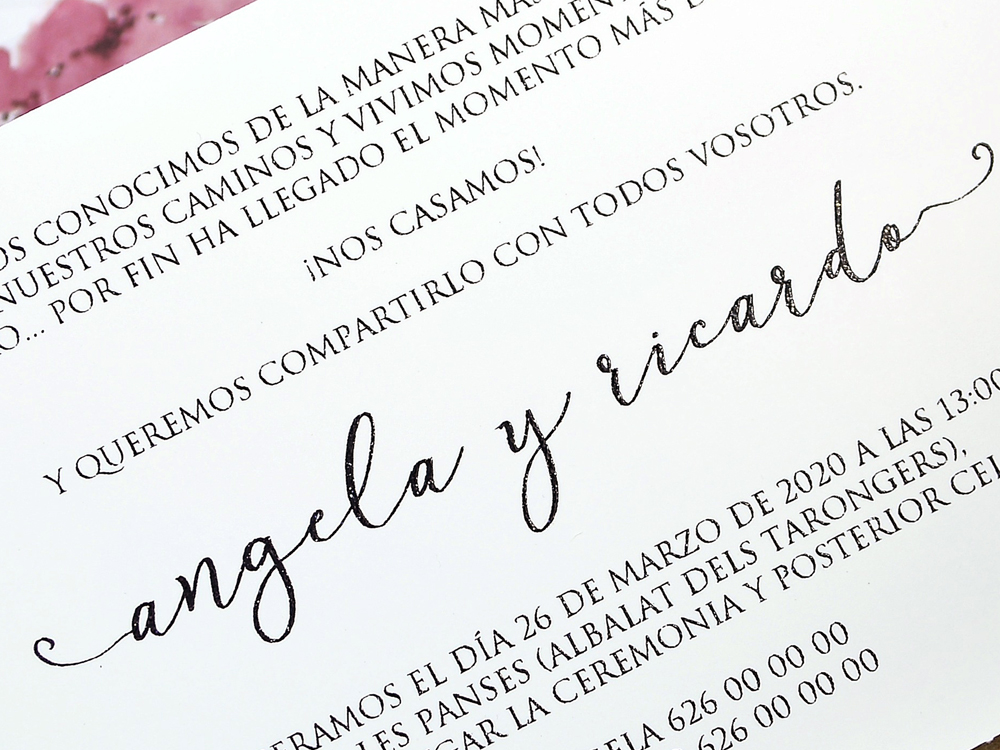 CONOCIMOS DE LA MANERA
NUESTROS CAMINOS Y VIVIMOS
... POR FIN HA LLEGADO EL MOMENTO MÁS
¡NOS CASAMOS!
Y QUEREMOS COMPARTIRLO CON TODOS VOSOTROS.
angela y ricardo
EL DÍA 26 DE MARZO DE 2020 A LAS 13:00
LES PANSES (ALBALAT DELS TARONGERS),
LA CEREMONIA Y POSTERIOR
626 00 00 00
626 00 00 00